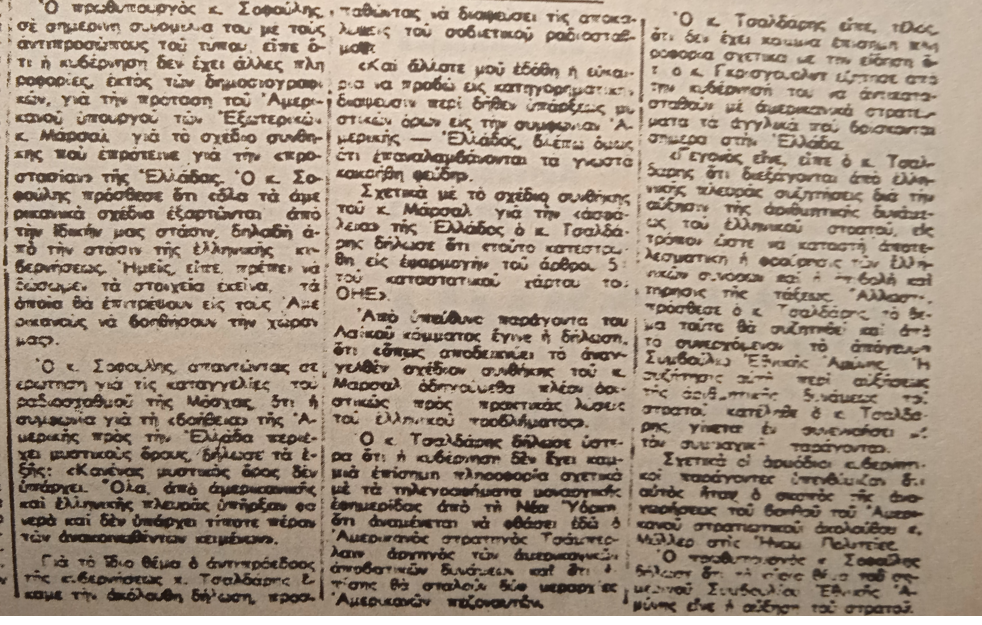 Ὁ πρωθυπουργὸς κ. Σοφούλης,
σὲ σημερινὴ συνομιλία του μὲ τοὺς
ἀντιπροσώπους τοῦ τύπου, εἶπε ὅ-
τι ἡ κυβέρνηση δὲν ἔχει ἄλλες πλη
ροφορίες, ἐκτὸς τῶν δημοσιογραφι
κῶν, γιὰ τὴν πρόταση τοῦ Ἀμερι-
κανοῦ ὑπουργοῦ τῶν Ἐξωτερικῶν
κ. Μάρσαλ γιὰ τὸ σχέδιο συνθή-
κης ποὺ ἐπρότεινε γιὰ τὴν «προ-
στασίαν» τῆς Ἑλλάδας. Ὁ κ. Σο-
φούλης πρόσθεσε ὅτι «ὅλα τὰ ἀμε
ρικανικὰ σχέδια ἐξαρτῶνται ἀπὸ
τὴν ἰδικήν μας στάσιν, δηλαδὴ ἀ-
πὸ τὴν στάσιν τῆς ἑλληνικῆς κυ-
βερνήσεως. Ἡμεῖς, εἶπε, πρέπει νὰ
δώσωμεν τὰ στοιχεῖα ἐκεῖνα, τὰ
ὁποῖα θὰ ἐπιτρέψουν εἰς τοὺς Ἀμε
ρικανοὺς νὰ βοηθήσουν τὴν χώραν
μας».
Ὁ κ. Σοφούλης, ἀπαντώντας σὲ
ἐρώτηση γιὰ τὶς καταγγελίες τοῦ
ραδιοσταθμοῦ τῆς Μόσχας, ὅτι ἡ
συμφωνία γιὰ τὴ «βοήθεια» τῆς Ἀ-
μερικῆς πρὸς τὴν Ἑλλάδα περιέ-
χει μυστικοὺς ὅρους, δήλωσε τὰ ἑ-
ξῆς: «Κανένας μυστικὸς ὅρος δὲν
ὑπάρχει. Ὅλα, ἀπὸ ἀμερικανικῆς
καὶ ἑλληνικῆς πλευρᾶς ὑπῆρξαν φα
νερὰ καὶ δὲν ὑπάρχει τίποτε πέραν
τῶν ἀνακοινωθέντων κειμένων».
Γιὰ τὸ ἴδιο θέμα ὁ ἀντιπρόεδρος
τῆς κυβερνήσεως κ. Τσαλδάρης ἔ-
καμε τὴν ἀκόλουθη δήλωση, προσ-
παθώντας νὰ διαψεύσει τὶς ἀποκα-
λύψεις τοῦ σοβιετικοῦ ραδιοσταθ-
μοῦ:
«Καὶ ἄλλοτε μοῦ ἐδόθη ἡ εὐκαι-
ρία νὰ προβῶ εἰς κατηγορηματικὴν
διάψευσιν περὶ δῆθεν ὑπάρξεως μυ
στικῶν ὅρων εἰς τὴν συμφωνίαν Ἀ-
μερικῆς — Ἑλλάδος, βλέπω ὅμως
ὅτι ἐπαναλαμβάνονται τὰ γνωστὰ
κακοήθη ψεύδη».
Σχετικὰ μὲ τὸ σχέδιο συνθήκης
τοῦ κ. Μάρσαλ γιὰ τὴν «ἀσφά-
λεια» τῆς Ἑλλάδος ὁ κ. Τσαλδά-
ρης δήλωσε ὅτι «τοῦτο κατεστρώ-
θη εἰς ἐφαρμογὴν τοῦ ἄρθρου 5
τοῦ καταστατικοῦ χάρτου τοῦ
ΟΗΕ».
Ἀπὸ ὑπεύθυνο παράγοντα τοῦ
Λαϊκοῦ κόμματος ἔγινε ἡ δήλωση,
ὅτι «ὅπως ἀποδεικνύει τὸ ἀναγ-
γελθὲν σχέδιον συνθήκης τοῦ κ.
Μάρσαλ ὁδηγούμεθα πλέον ὁρι-
στικῶς πρὸς πρακτικὰς λύσεις
τοῦ ἑλληνικοῦ προβλήματος».
Ὁ κ. Τσαλδάρης δήλωσε ὕστε-
ρα ὅτι ἡ κυβέρνηση δὲν ἔχει καμ-
μιὰ ἐπίσημη πληροφορία σχετικὰ
μὲ τὰ τηλεγραφήματα μοναρχικῆς
ἐφημερίδας ἀπὸ τὴ Νέα Ὑόρκη
ὅτι ἀναμένεται νὰ φθάσει ἐδῶ ὁ
Ἀμερικανὸς στρατηγὸς Τσάμπερ-
λαιν ἀρχηγὸς τῶν ἀμερικανικῶν
ἀποβατικῶν δυνάμεων καὶ ὅτι ἐ-
πίσης θὰ σταλοῦν δύο μεραρχίες
Ἀμερικανῶν πεζοναυτῶν.
Ὁ κ. Τσαλδάρης εἶπε, τέλος,
ὅτι δὲν ἔχει καμμιὰ ἐπίσημη πλη
ροφορία σχετικὰ μὲ τὴν εἴδηση ὅ-
τι ὁ κ. Γκρίσγουολντ ζήτησε ἀπὸ
τὴν κυβέρνησή του νὰ ἀντικατα-
σταθοῦν μὲ ἀμερικανικὰ στρατεύ-
ματα τὰ ἀγγλικὰ ποὺ βρίσκονται
σήμερα στὴν Ἑλλάδα.
«Γεγονὸς εἶνε, εἶπε ὁ κ. Τσαλ-
δάρης ὅτι διεξάγονται ἀπὸ ἑλλη-
νικῆς πλευρᾶς συζητήσεις διὰ τὴν
αὔξησιν τῆς ἀριθμητικῆς δυνάμε-
ως τοῦ ἑλληνικοῦ στρατοῦ, εἰς
τρόπον ὥστε νὰ καταστῇ ἀποτε-
λεσματικὴ ἡ φρούρησις τῶν ἑλλη-
νικῶν συνόρων καὶ ἡ ἐπιβολὴ καὶ
τήρησις τῆς τάξεως. Ἄλλωστε,
πρόσθεσε ὁ κ. Τσαλδάρης τὸ θέ-
μα τοῦτο θὰ συζητηθεῖ καὶ ἀπὸ
τὸ συνερχόμενο τὸ ἀπόγευμα
Συμβούλιο Ἐθνικῆς Ἀμύνης. Ἡ
συζήτησις αὐτὴ περὶ αὐξήσεως
τῆς ἀριθμητικῆς δυνάμεως τοῦ
στρατοῦ, κατέληξε ὁ κ. Τσαλδά-
ρης, γίνεται ἐν συνεννοήσει μὲ
τὸν συμμαχικὸ παράγοντα».
Σχετικὰ οἱ ἁρμόδιοι κυβερνητι-
κοὶ παράγοντες ὑπενθύμιζαν ὅτι
αὐτὸς ἦταν ὁ σκοπὸς τῆς ἀνα-
χωρήσεως τοῦ βοηθοῦ τοῦ Ἀμερι-
κανοῦ στρατιωτικοῦ ἀκολούθου κ.
Μίλλερ στὶς Ἡνωμ. Πολιτεῖες.
Ὁ πρωθυπουργὸς κ. Σοφούλης
δήλωσε ὅτι τὸ κύριο θέμα τοῦ ση-
μερινοῦ Συμβουλίου Ἐθνικῆς Ἀ-
μύνης εἶνε ἡ αὔξηση τοῦ στρατοῦ.